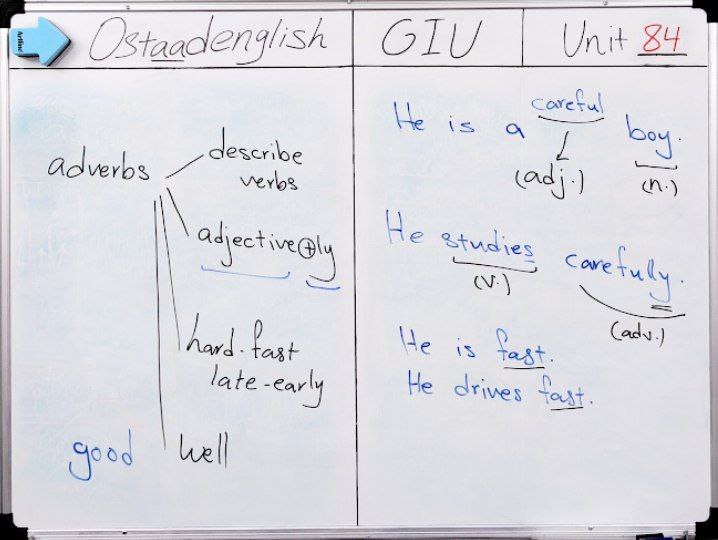 Ostaadenglish
GIU
Unit 84
adverbs
describe
verbs
adjective + ly
hard - fast
late - early
good
well
He is a careful boy.
(adj.)
(n.)
He studies carefully.
(v.)
(adv.)
He is fast.
He drives fast.